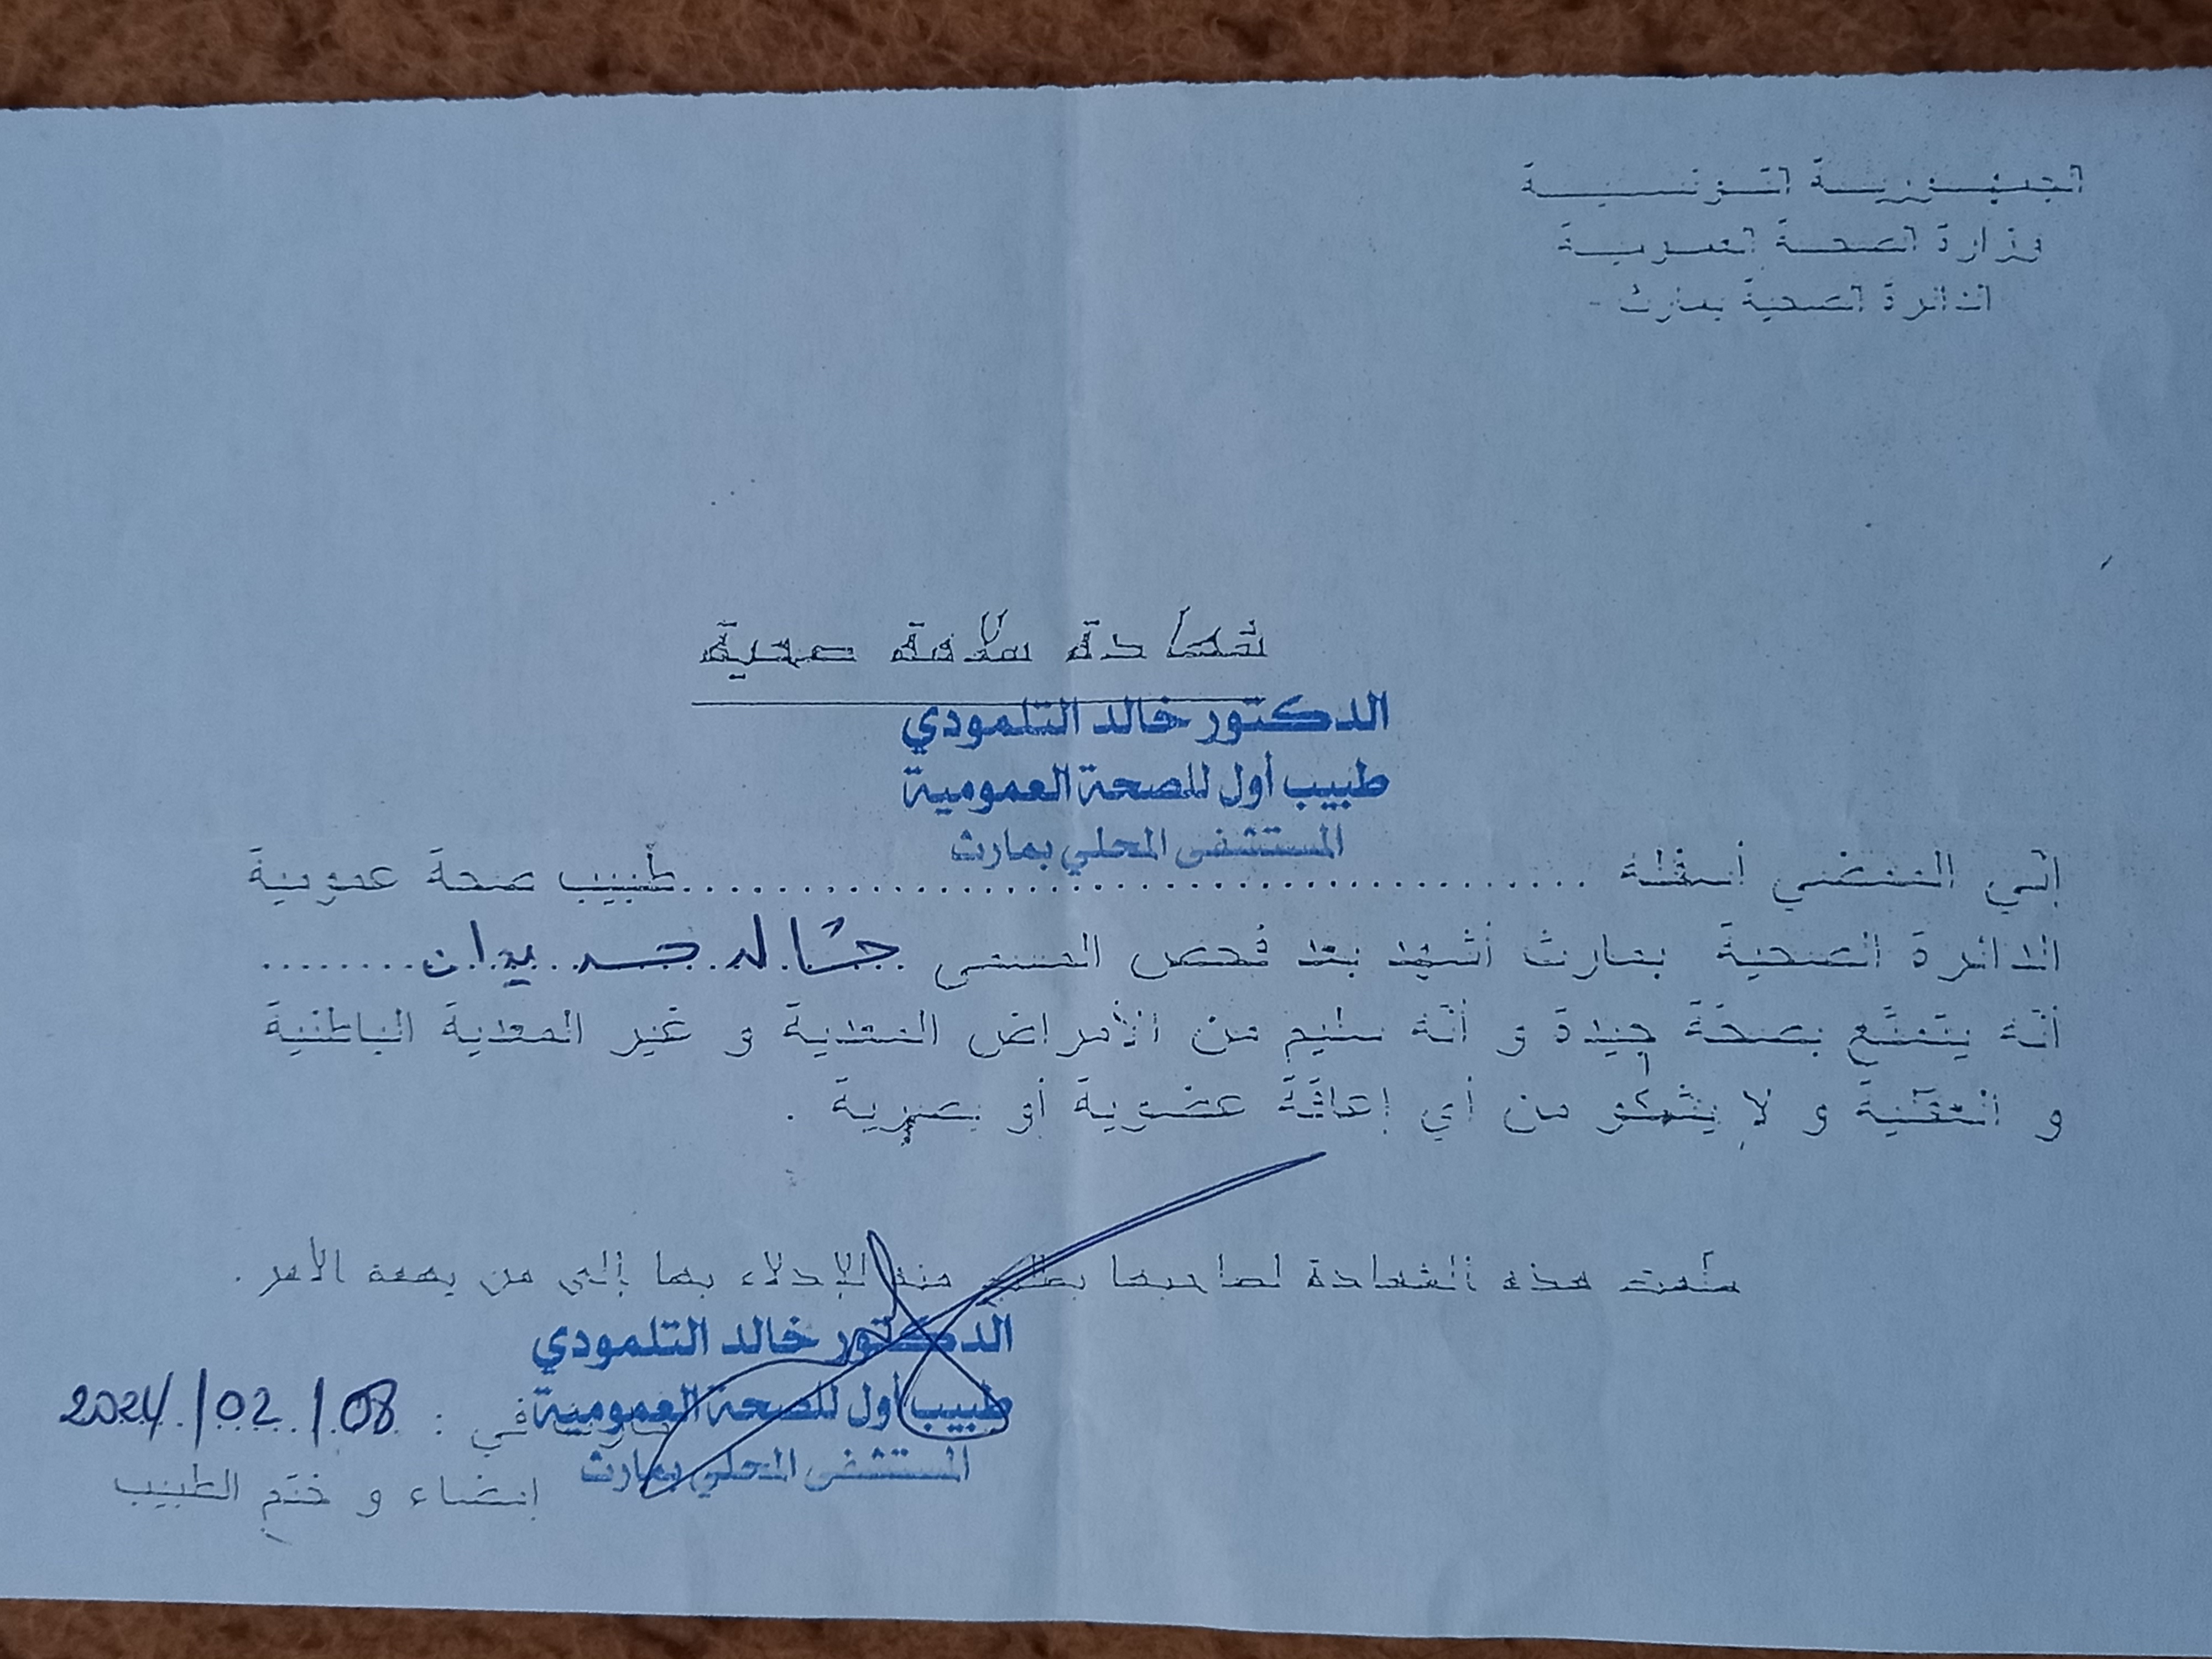 الجمهورية التونسية
وزارة الصحة العمومية
الدائرة الصحية بمارث -
شهادة سلامة صحية
الدكتور خالد التلمودي
طبيب أول للصحة العمومية
المستشفى المحلي بمارث
إنّي الممضي أسفله ........................................ طبيب صحة عمومية
الدائرة الصحية بمارث أشهد بعد فحص المسمى خالد حميدان ........
أنّه يتمتّع بصحّة جيّدة و أنّه سليم من الأمراض المعدية و غير المعدية الباطنية
و العقليّة و لا يشكو من أي إعاقة عضوية أو بصرية .
سلّمت هذه الشهادة لصاحبها بطلب منه للإدلاء بها إلى من يهمه الأمر .
الدكتور خالد التلمودي
طبيب أول للصحة العمومية
المستشفى المحلي بمارث
في : 08/02/2024
إمضاء و ختم الطبيب